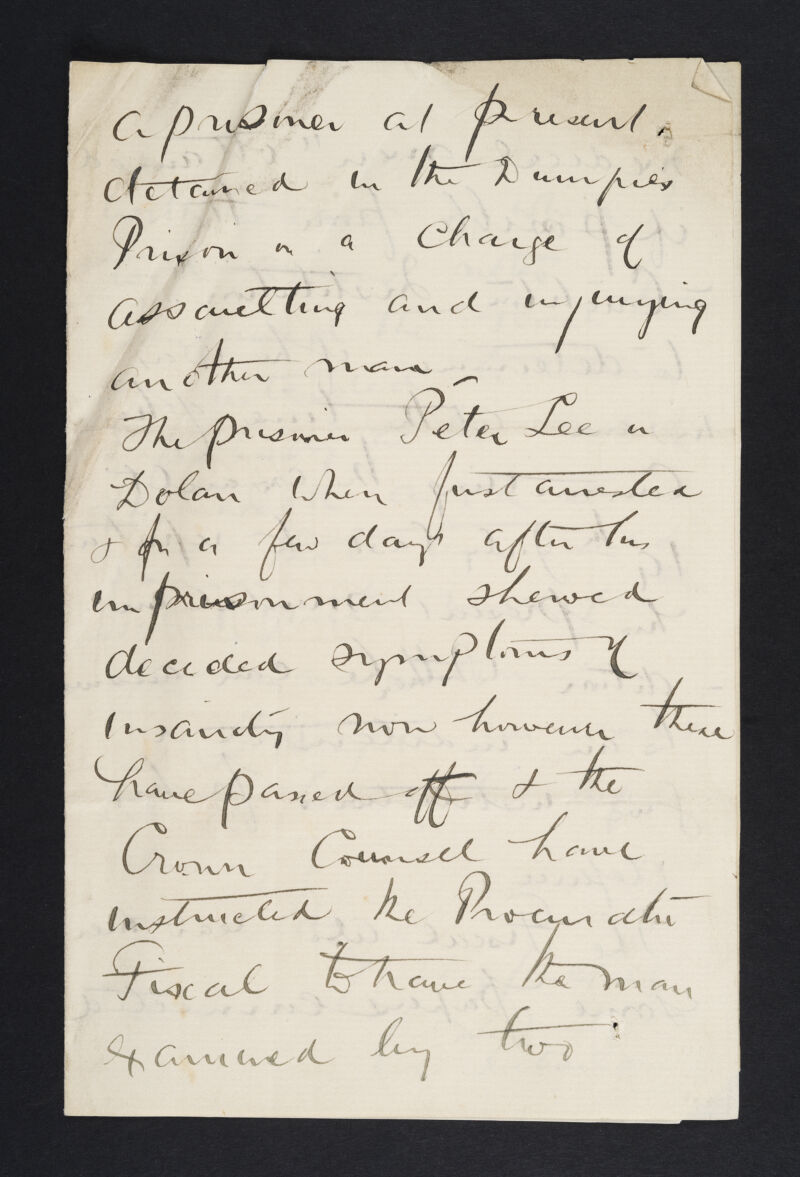 a prisoner at present
detained in the Dumfries
Prison on a Charge of
assaulting and injurying
another man
The prisoner Peter Lee or
Dolan when first arrested
& for a few days after his
imprisonment shewed
decided symptoms of
insanity now however these
have passed off & the
Crown Counsel have
instructed the Procurator
Fiscal to have the man
examined by two